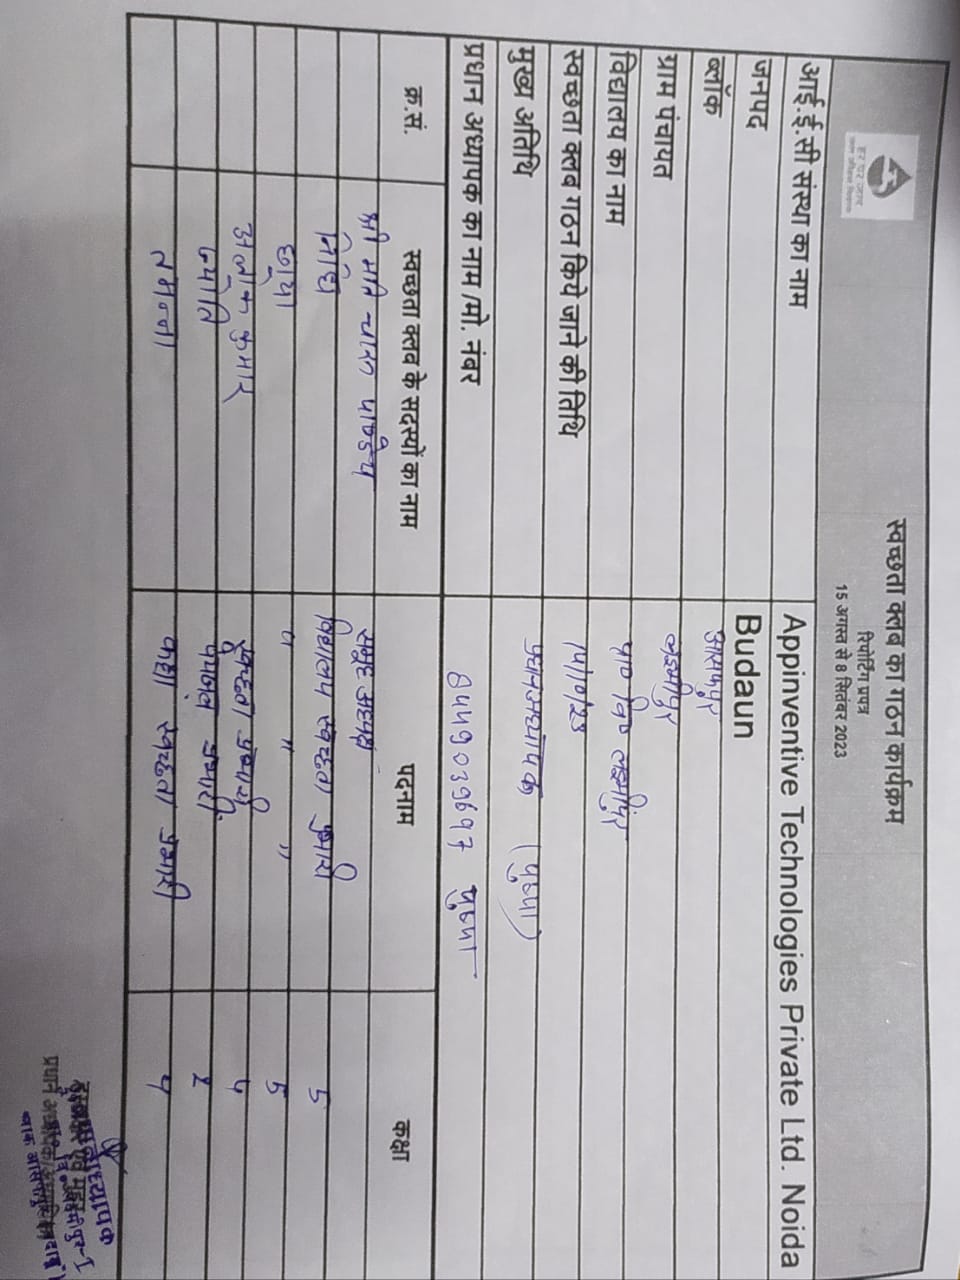 हर घर जल
स्वच्छता क्लब का गठन कार्यक्रम
रिपोर्टिंग प्रपत्र
15 अगस्त से 8 सितंबर 2023
आई.ई.सी संस्था का नाम Appinventive Technologies Private Ltd. Noida
जनपद Budaun
ब्लॉक आसफपुर
ग्राम पंचायत लक्ष्मीपुर
विद्यालय का नाम प्रा० वि० लक्ष्मीपुर
स्वच्छता क्लव गठन किये जाने की तिथि
मुख्य अतिथि प्रधानअध्यापक (पुष्पा)
प्रधान अध्यापक का नाम /मो. नंबर पुष्पा
क्र.सं. स्वच्छता क्लव के सदस्यों का नाम पदनाम कक्षा
श्री मति पाण्डेय समूह
निधि विद्यालय स्वच्छता प्रभारी 5
छाया " " " 5
कुमार प्रभारी 4
ज्योति प्रभारी 2
तमन्ना कक्षा स्वच्छता प्रभारी 4